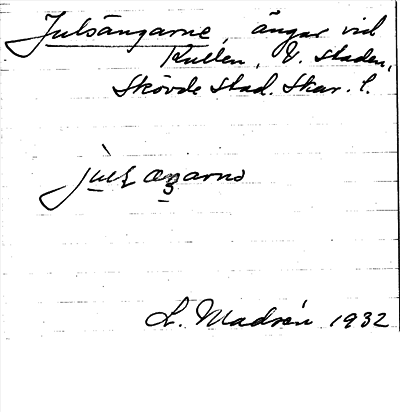 Julsängarne, ängar vid
Kullen, V. staden,
Skövde stad. Skar. l.
L. Madsén 1932